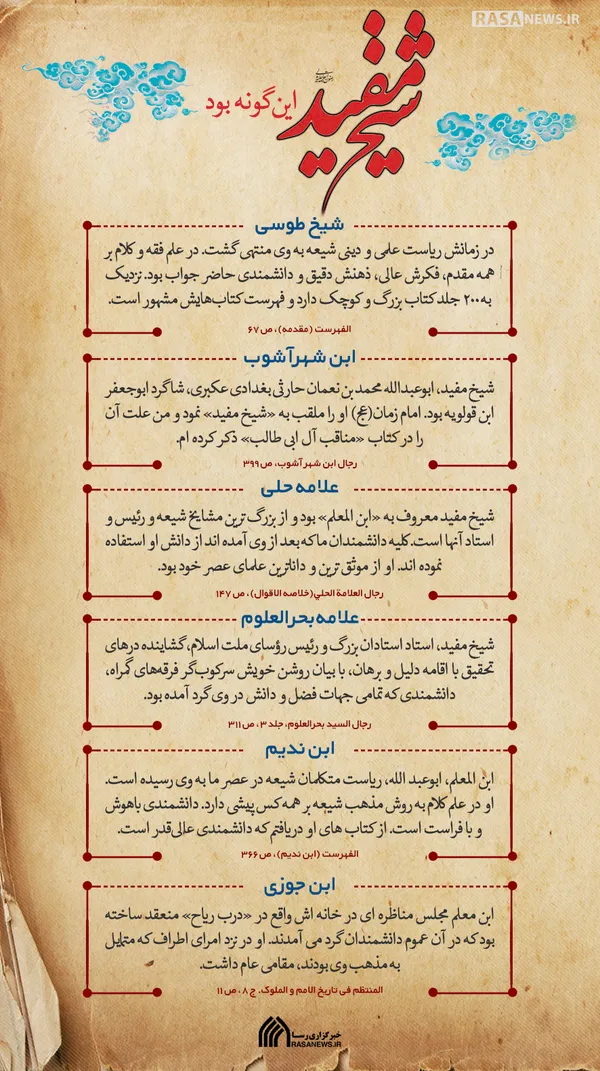 RASANEWS.IR
شیخ مفید
این‌گونه بود
شیخ طوسی
در زمانش ریاست علمی و دینی شیعه به وی منتهی گشت. در علم فقه و کلام بر
همه مقدم، فکرش عالی، ذهنش دقیق و دانشمندی حاضر جواب بود. نزدیک
به ۲۰۰ جلد کتاب بزرگ و کوچک دارد و فهرست کتاب‌هایش مشهور است.
الفهرست (مقدمه)، ص ۶۷
ابن شهرآشوب
شیخ مفید، ابوعبدالله محمد بن نعمان حارثی بغدادی عکبری، شاگرد ابوجعفر
ابن قولویه بود. امام زمان(عج) او را ملقب به «شیخ مفید» نمود و من علت آن
را در کتاب «مناقب آل ابی طالب» ذکر کرده ام.
رجال ابن شهرآشوب، ص ۳۹۹
علامه حلی
شیخ مفید معروف به «ابن المعلم» بود و از بزرگ ترین مشایخ شیعه و رئیس و
استاد آنها است. کلیه دانشمندان ما که بعد از وی آمده اند از دانش او استفاده
نموده اند. او از موثق ترین و داناترین علمای عصر خود بود.
رجال العلامة الحلي(خلاصه الاقوال)، ص ۱۴۷
علامه بحرالعلوم
شیخ مفید، استاد استادان بزرگ و رئیس رؤسای ملت اسلام، گشاینده درهای
تحقیق با اقامه دلیل و برهان، با بیان روشن خویش سرکوب‌گر فرقه‌های گمراه،
دانشمندی که تمامی جهات فضل و دانش در وی گرد آمده بود.
رجال السید بحرالعلوم، جلد ۳، ص ۳۱۱
ابن ندیم
ابن المعلم، ابوعبد الله، ریاست متکلمان شیعه در عصر ما به وی رسیده است.
او در علم کلام به روش مذهب شیعه بر همه کس پیشی دارد. دانشمندی باهوش
و با فراست است. از کتاب های او دریافتم که دانشمندی عالی‌قدر است.
الفهرست (ابن ندیم)، ص ۳۶۶
ابن جوزی
ابن معلم مجلس مناظره ای در خانه اش واقع در «درب ریاح» منعقد ساخته
بود که در آن عموم دانشمندان گرد می آمدند. او در نزد امرای اطراف که متمایل
به مذهب وی بودند، مقامی عام داشت.
المنتظم فی تاریخ الامم و الملوک. ج ۸، ص ۱۱
خبرگزاری رسا
RASANEWS.IR